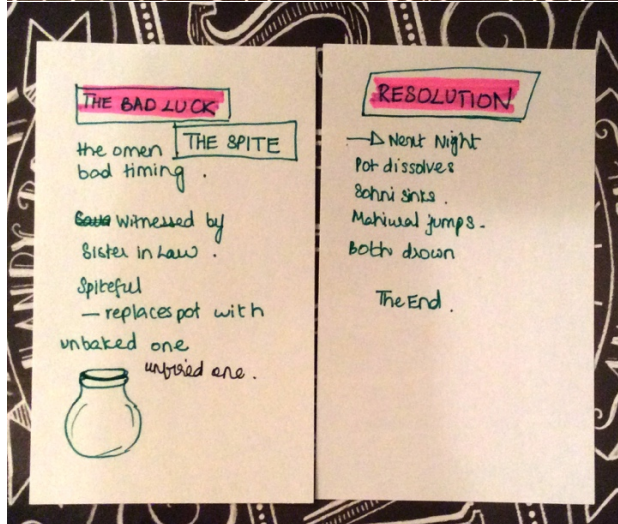 THE BAD LUCK
THE SPITE
the omen
bad timing .
witnessed by
Sister in Law .
Spiteful
— replaces pot with
unbaked one
unfired one .
RESOLUTION
→ Next Night
Pot dissolves
Sohni sinks .
Mahiwal jumps -
Both drown
The End .